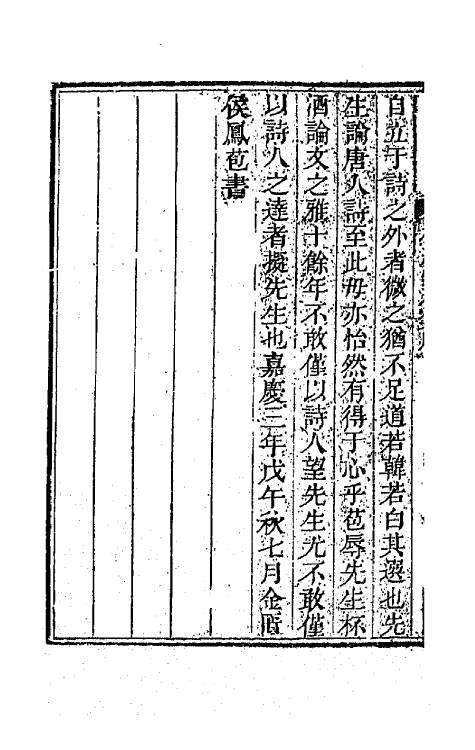 自立于詩之外者微之猶不足道若韓若白其選也先
生論唐人詩至此毋亦怡然有得于心乎苞辱先生杯
酒論文之雅十餘年不敢僅以詩人望先生尤不敢僅
以詩人之達者擬先生也嘉慶三年戊午秋七月金匱
侯鳳苞書